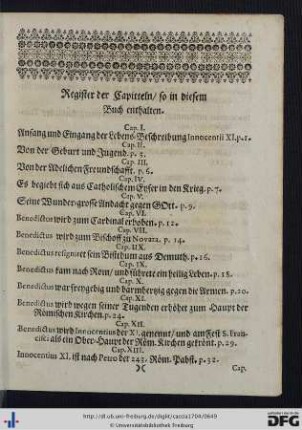 Register der Capitteln/ so in diesem
Buch enthalten.
Cap. I.
Anfang und Eingang der Lebens-Beschreibung Innocentii XI. p. 1.
Cap. II.
Von der Geburt und Jugend. p. 3.
Cap. III.
Von der Adelichen Freundschafft. p. 6.
Cap. IV.
Es begiebt sich aus Catholischem Eyfer in den Krieg. p. 7.
Cap. V.
Seine Wunder-grosse Andacht gegen GOtt. p. 9.
Cap. VI.
Benedictus wird zum Cardinal erhoben. p. 12.
Cap. VII.
Benedictus wird zum Bischoff zu Novara. p. 14.
Cap. IIX.
Benedictus resigniret sein Bisthum aus Demuth. p. 16.
Cap. IX.
Benedictus kam nach Rom/ und führete ein heilig Leben. p. 18.
Cap. X.
Benedictus war freygebig und barmhertzig gegen die Armen. p. 20.
Cap. XI.
Benedictus wird wegen seiner Tugenden erhöhet zum Haupt der
Römischen Kirchen. p. 24.
Cap. XII.
Benedictus wird Innocentius der XI. genennt/ und am Fest S. Fran-
cisci als ein Ober-Haupt der Röm. Kirchen gekrönt. p. 29.
Cap. XIII.
Innocentius XI. ist nach Petro der 243. Röm. Pabst. p. 32.
Cap.
http://dl.ub.uni-freiburg.de/diglit/caccia1704/0049
© Universitätsbibliothek Freiburg
gefördert durch
DFG